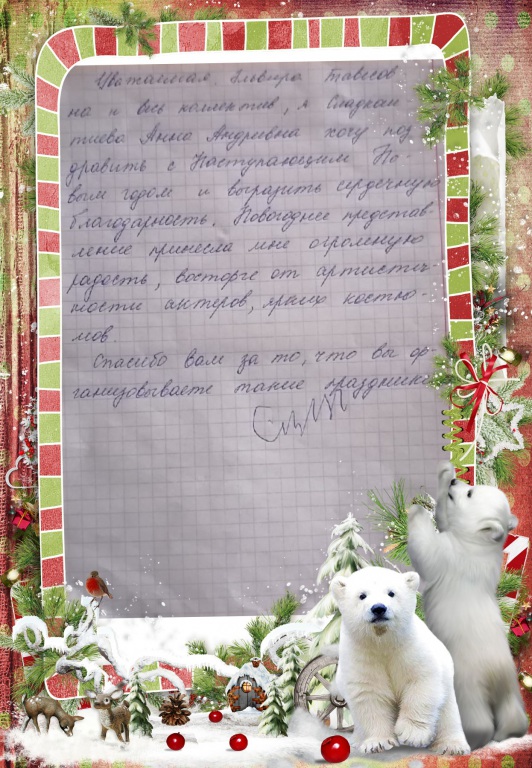 Уважаемая Эльвира Тависов
на и весь коллектив, я Сладкан
тиева Анна Андреевна хочу поз
дравить с Наступающим Но-
вым годом и выразить сердечную
благодарность. Новогоднее представ
ление принесла мне огромную
радость, восторге от артистич-
ности актеров, ярких костю-
мов.
Спасибо вам за то, что вы ор-
ганизовываете такие праздники